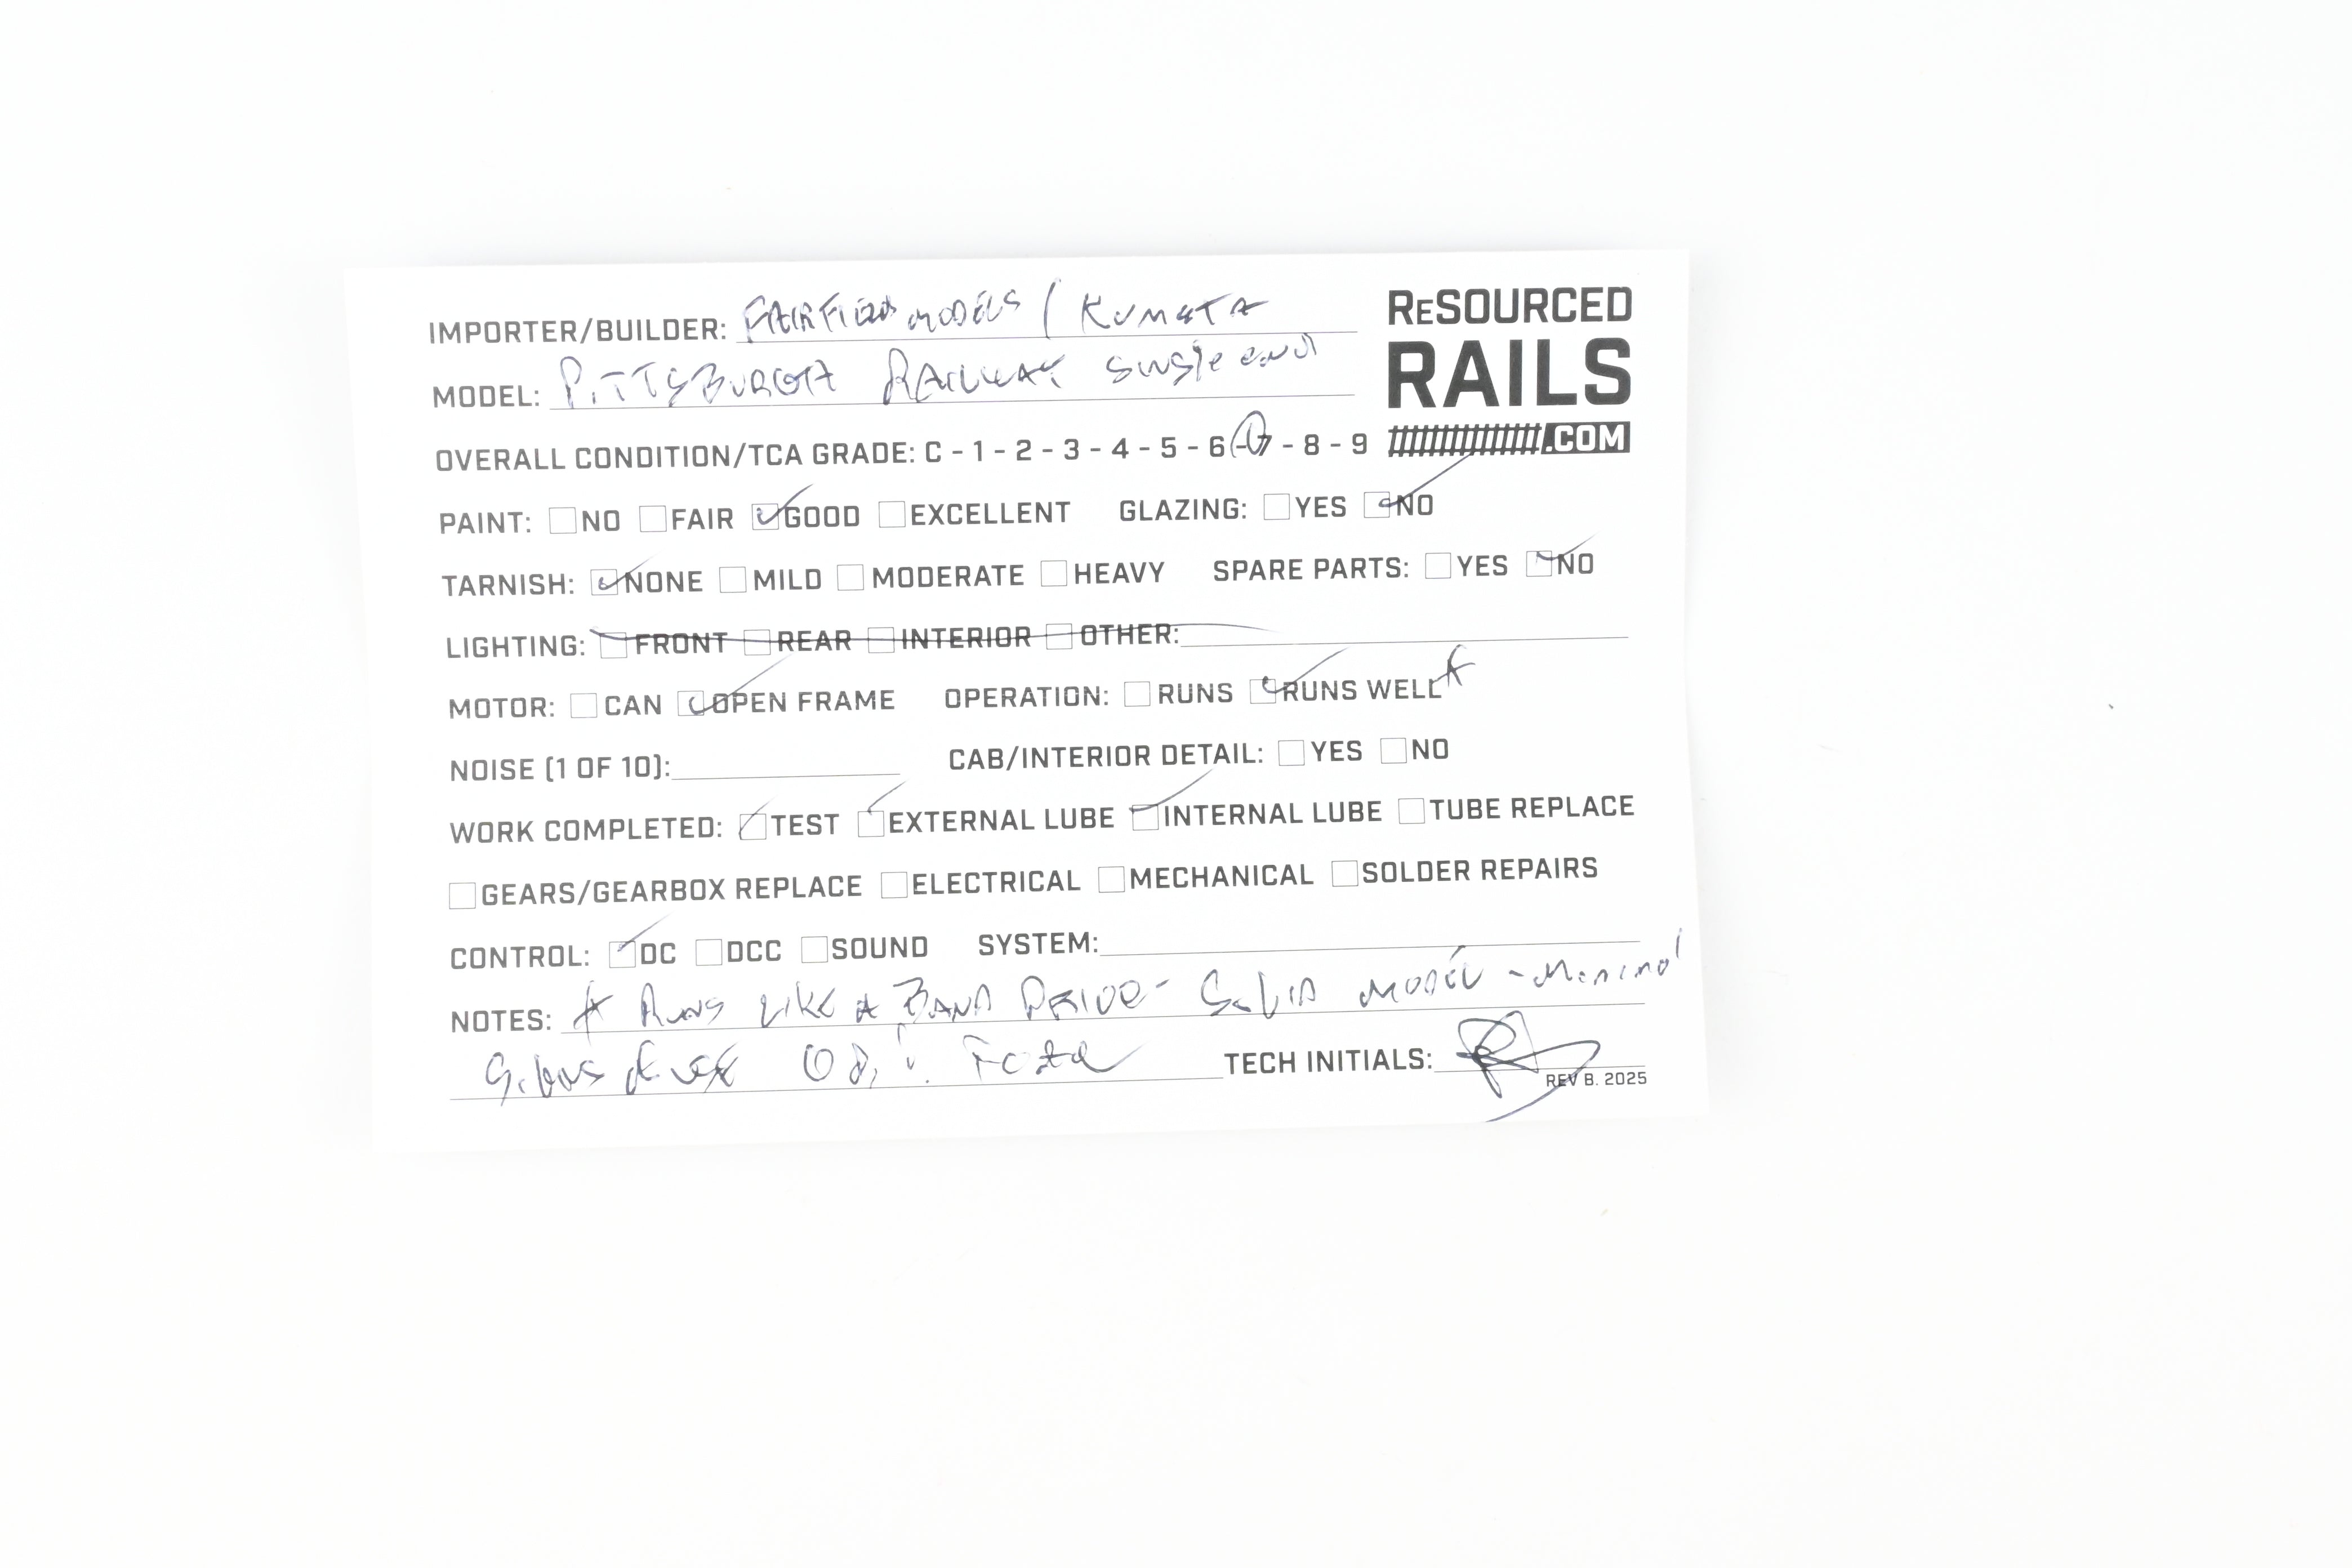 IMPORTER/BUILDER: FAIRFIELD MODELS / KUMATA
RESOURCED
RAILS
.COM
MODEL: PITTSBURGH RAILWAY Single end
OVERALL CONDITION/TCA GRADE: C - 1 - 2 - 3 - 4 - 5 - 6 - 7 - 8 - 9
PAINT: NO FAIR GOOD EXCELLENT GLAZING: YES NO
TARNISH: NONE MILD MODERATE HEAVY SPARE PARTS: YES NO
LIGHTING: FRONT REAR INTERIOR OTHER:
MOTOR: CAN OPEN FRAME OPERATION: RUNS RUNS WELL*
NOISE (1 OF 10): CAB/INTERIOR DETAIL: YES NO
WORK COMPLETED: TEST EXTERNAL LUBE INTERNAL LUBE TUBE REPLACE
GEARS/GEARBOX REPLACE ELECTRICAL MECHANICAL SOLDER REPAIRS
CONTROL: DC DCC SOUND SYSTEM:
NOTES: * RUNS LIKE A BAND DRIVE - SOLID MODEL - Minimal
TECH INITIALS:
REV B. 2025